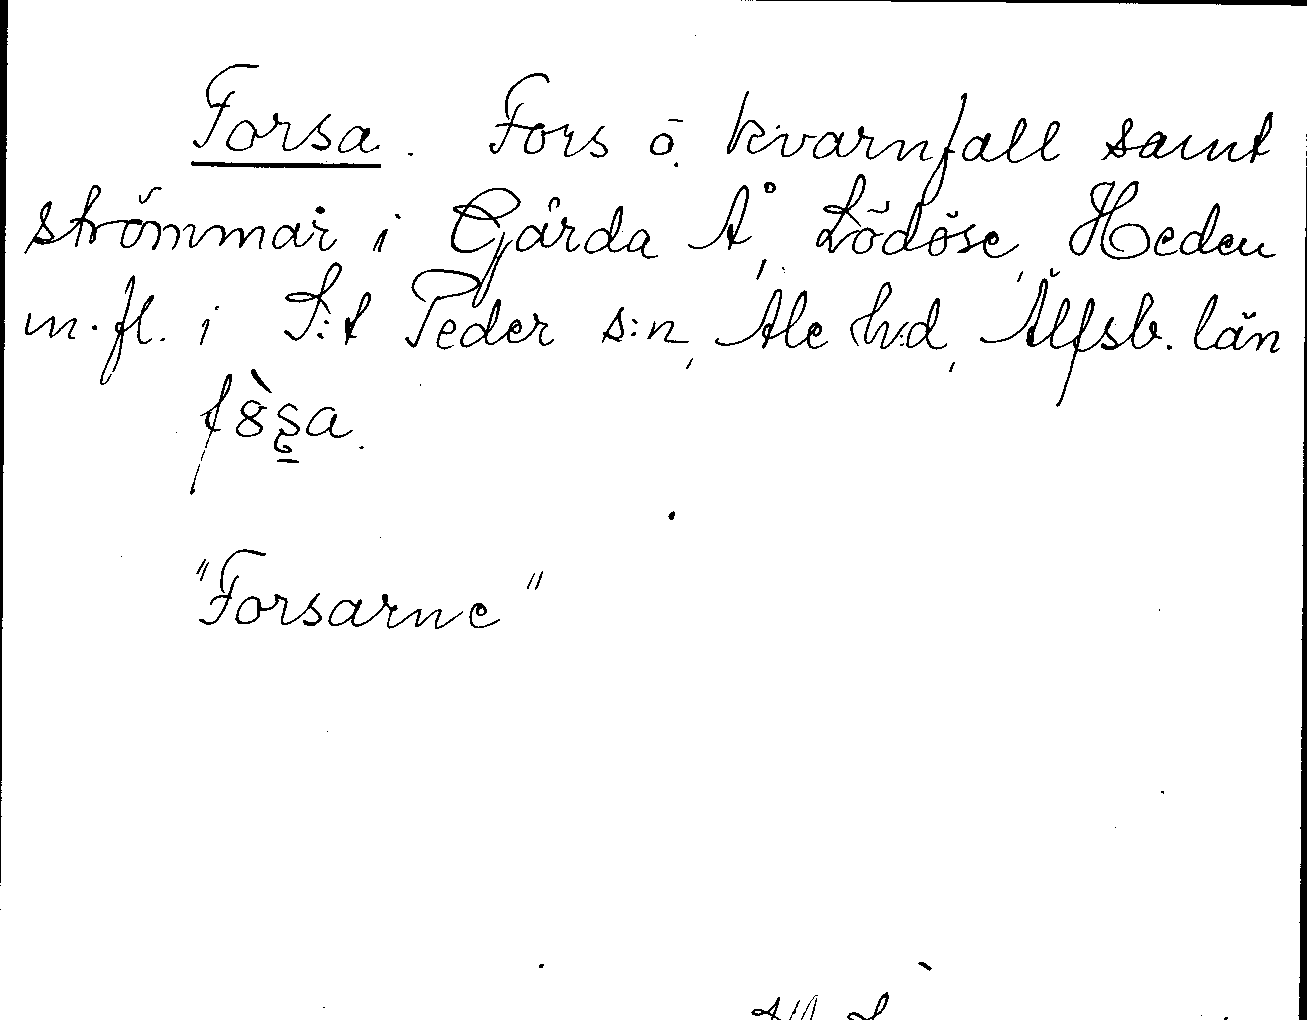 Forsa. Fors o. kvarnfall samt
strömmar i Gårda Å, Lödöse, Heden
m.fl. i S:t Peder s:n, Ale h:d, Älfsb. län
"Forsarne"